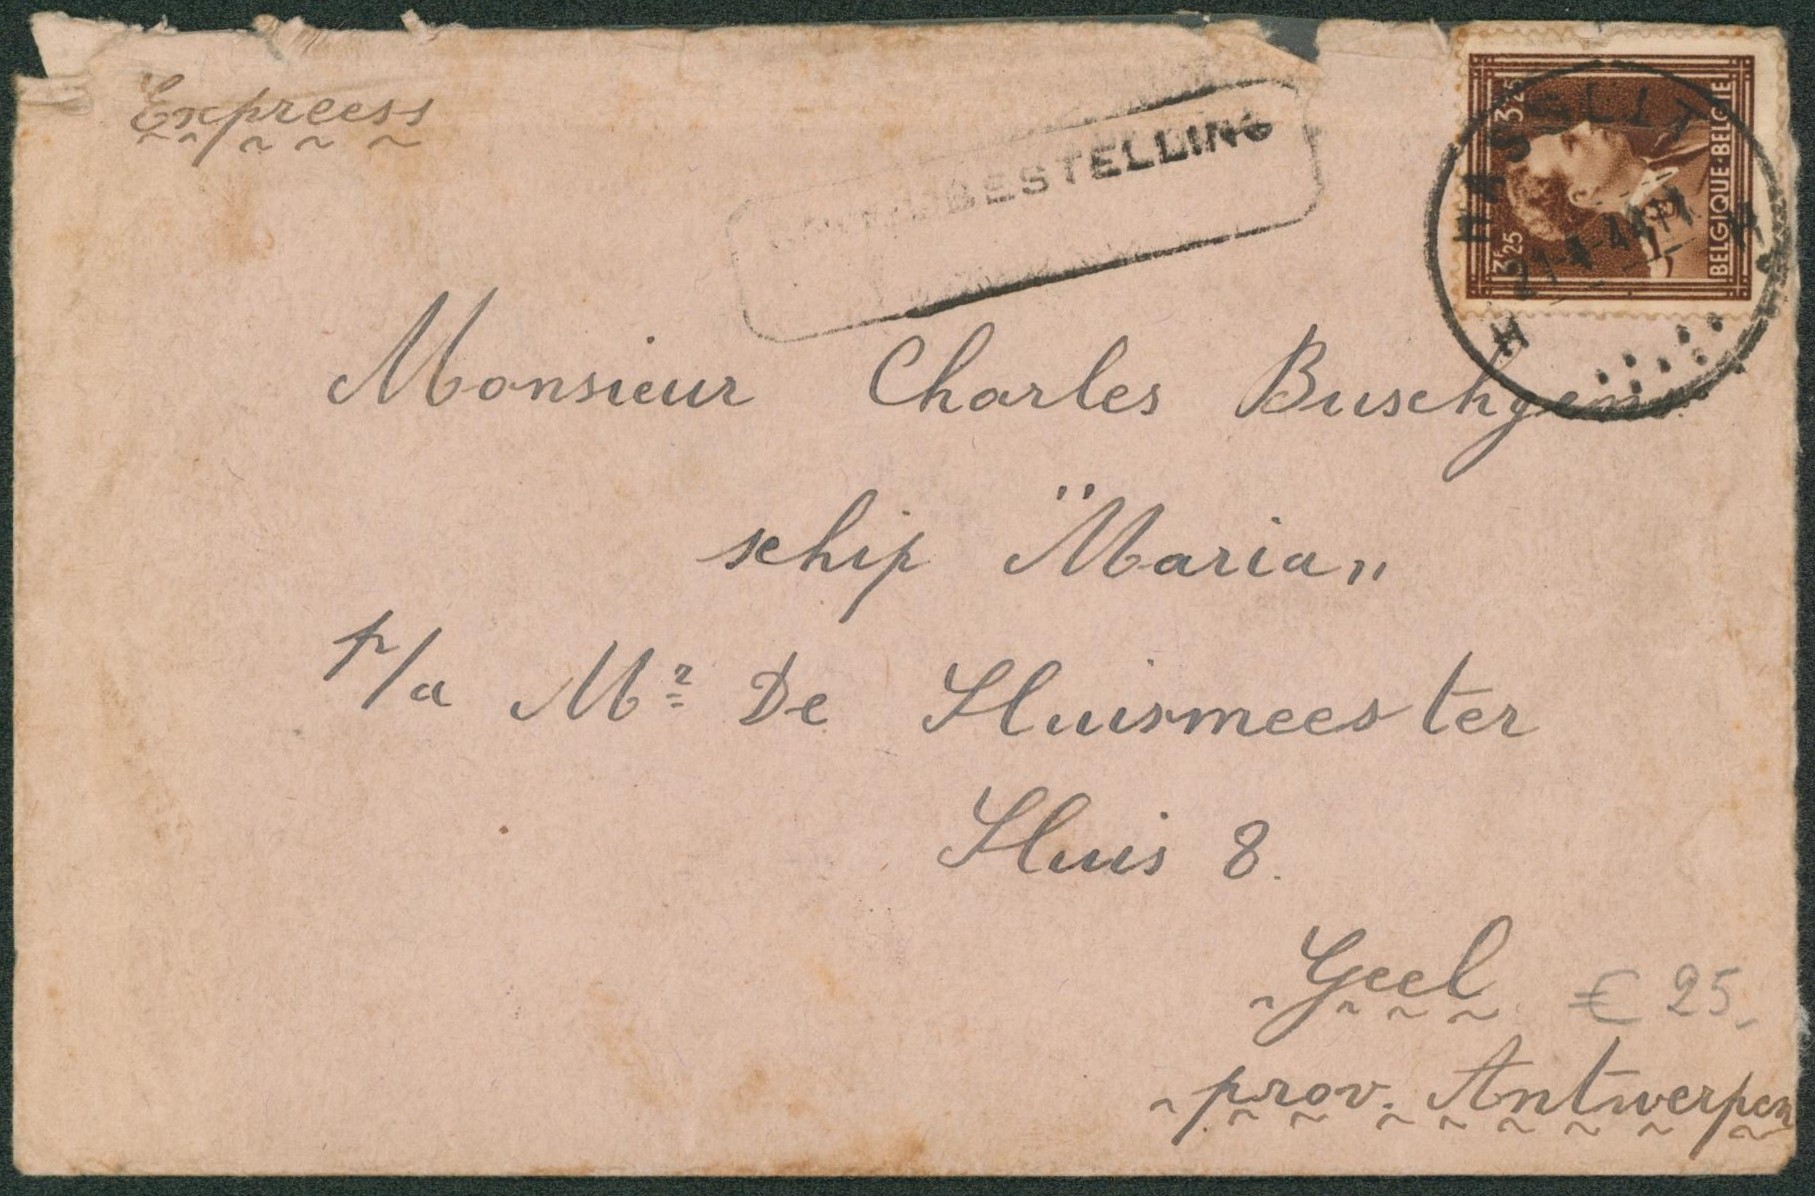 Expreess
BESTELLING
3F25 3F25
BELGIQUE·BELGIË
HASSELT
H H
Monsieur Charles Buschgens
schip "Maria„
p/a Mr De Sluismeester
Sluis 8.
Geel
€ 25,
prov. Antwerpen